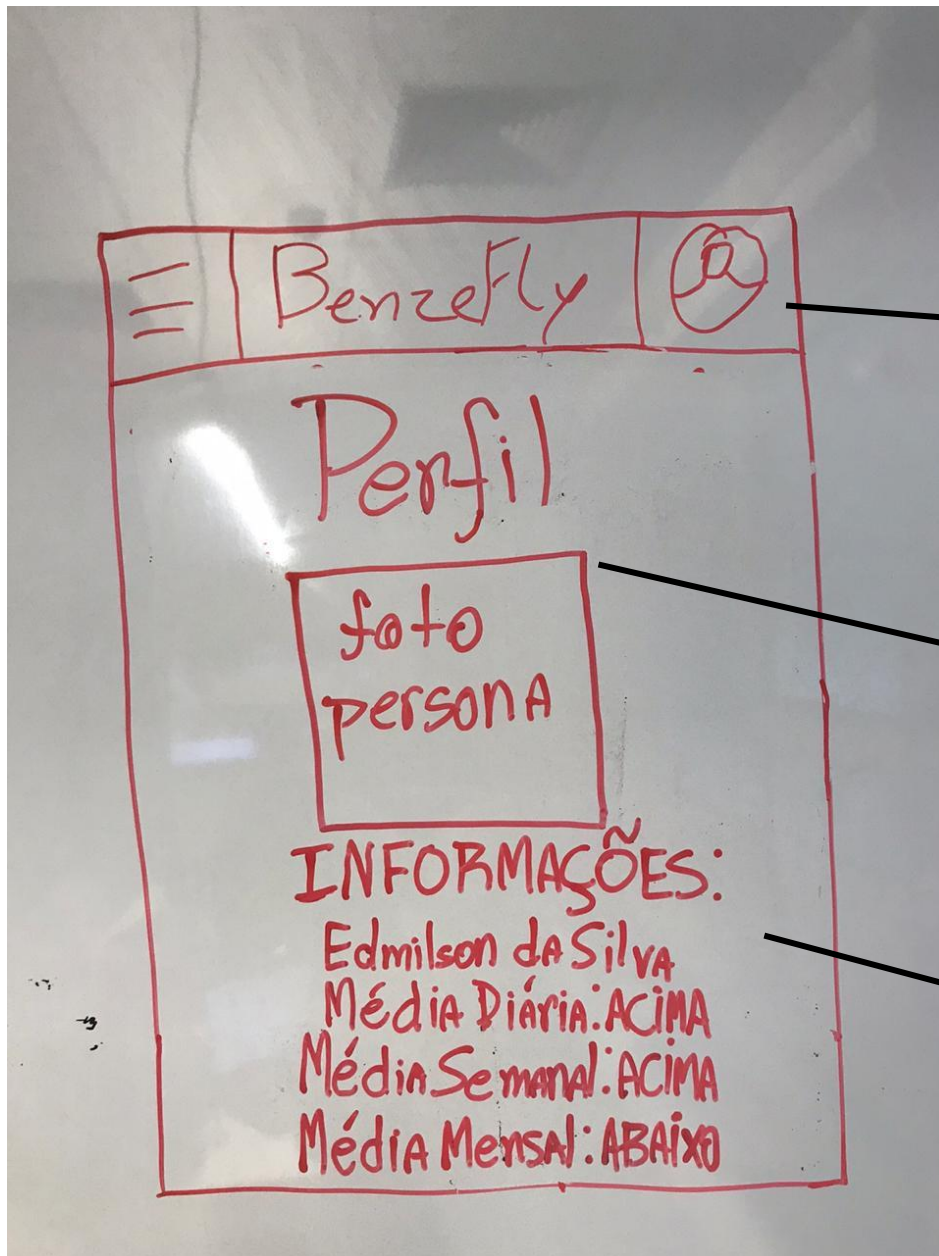 Benzefly
Perfil
foto
persona
INFORMAÇÕES:
Edmilson da Silva
Média Diária: ACIMA
Média Semanal: ACIMA
Média Mensal: ABAIXO